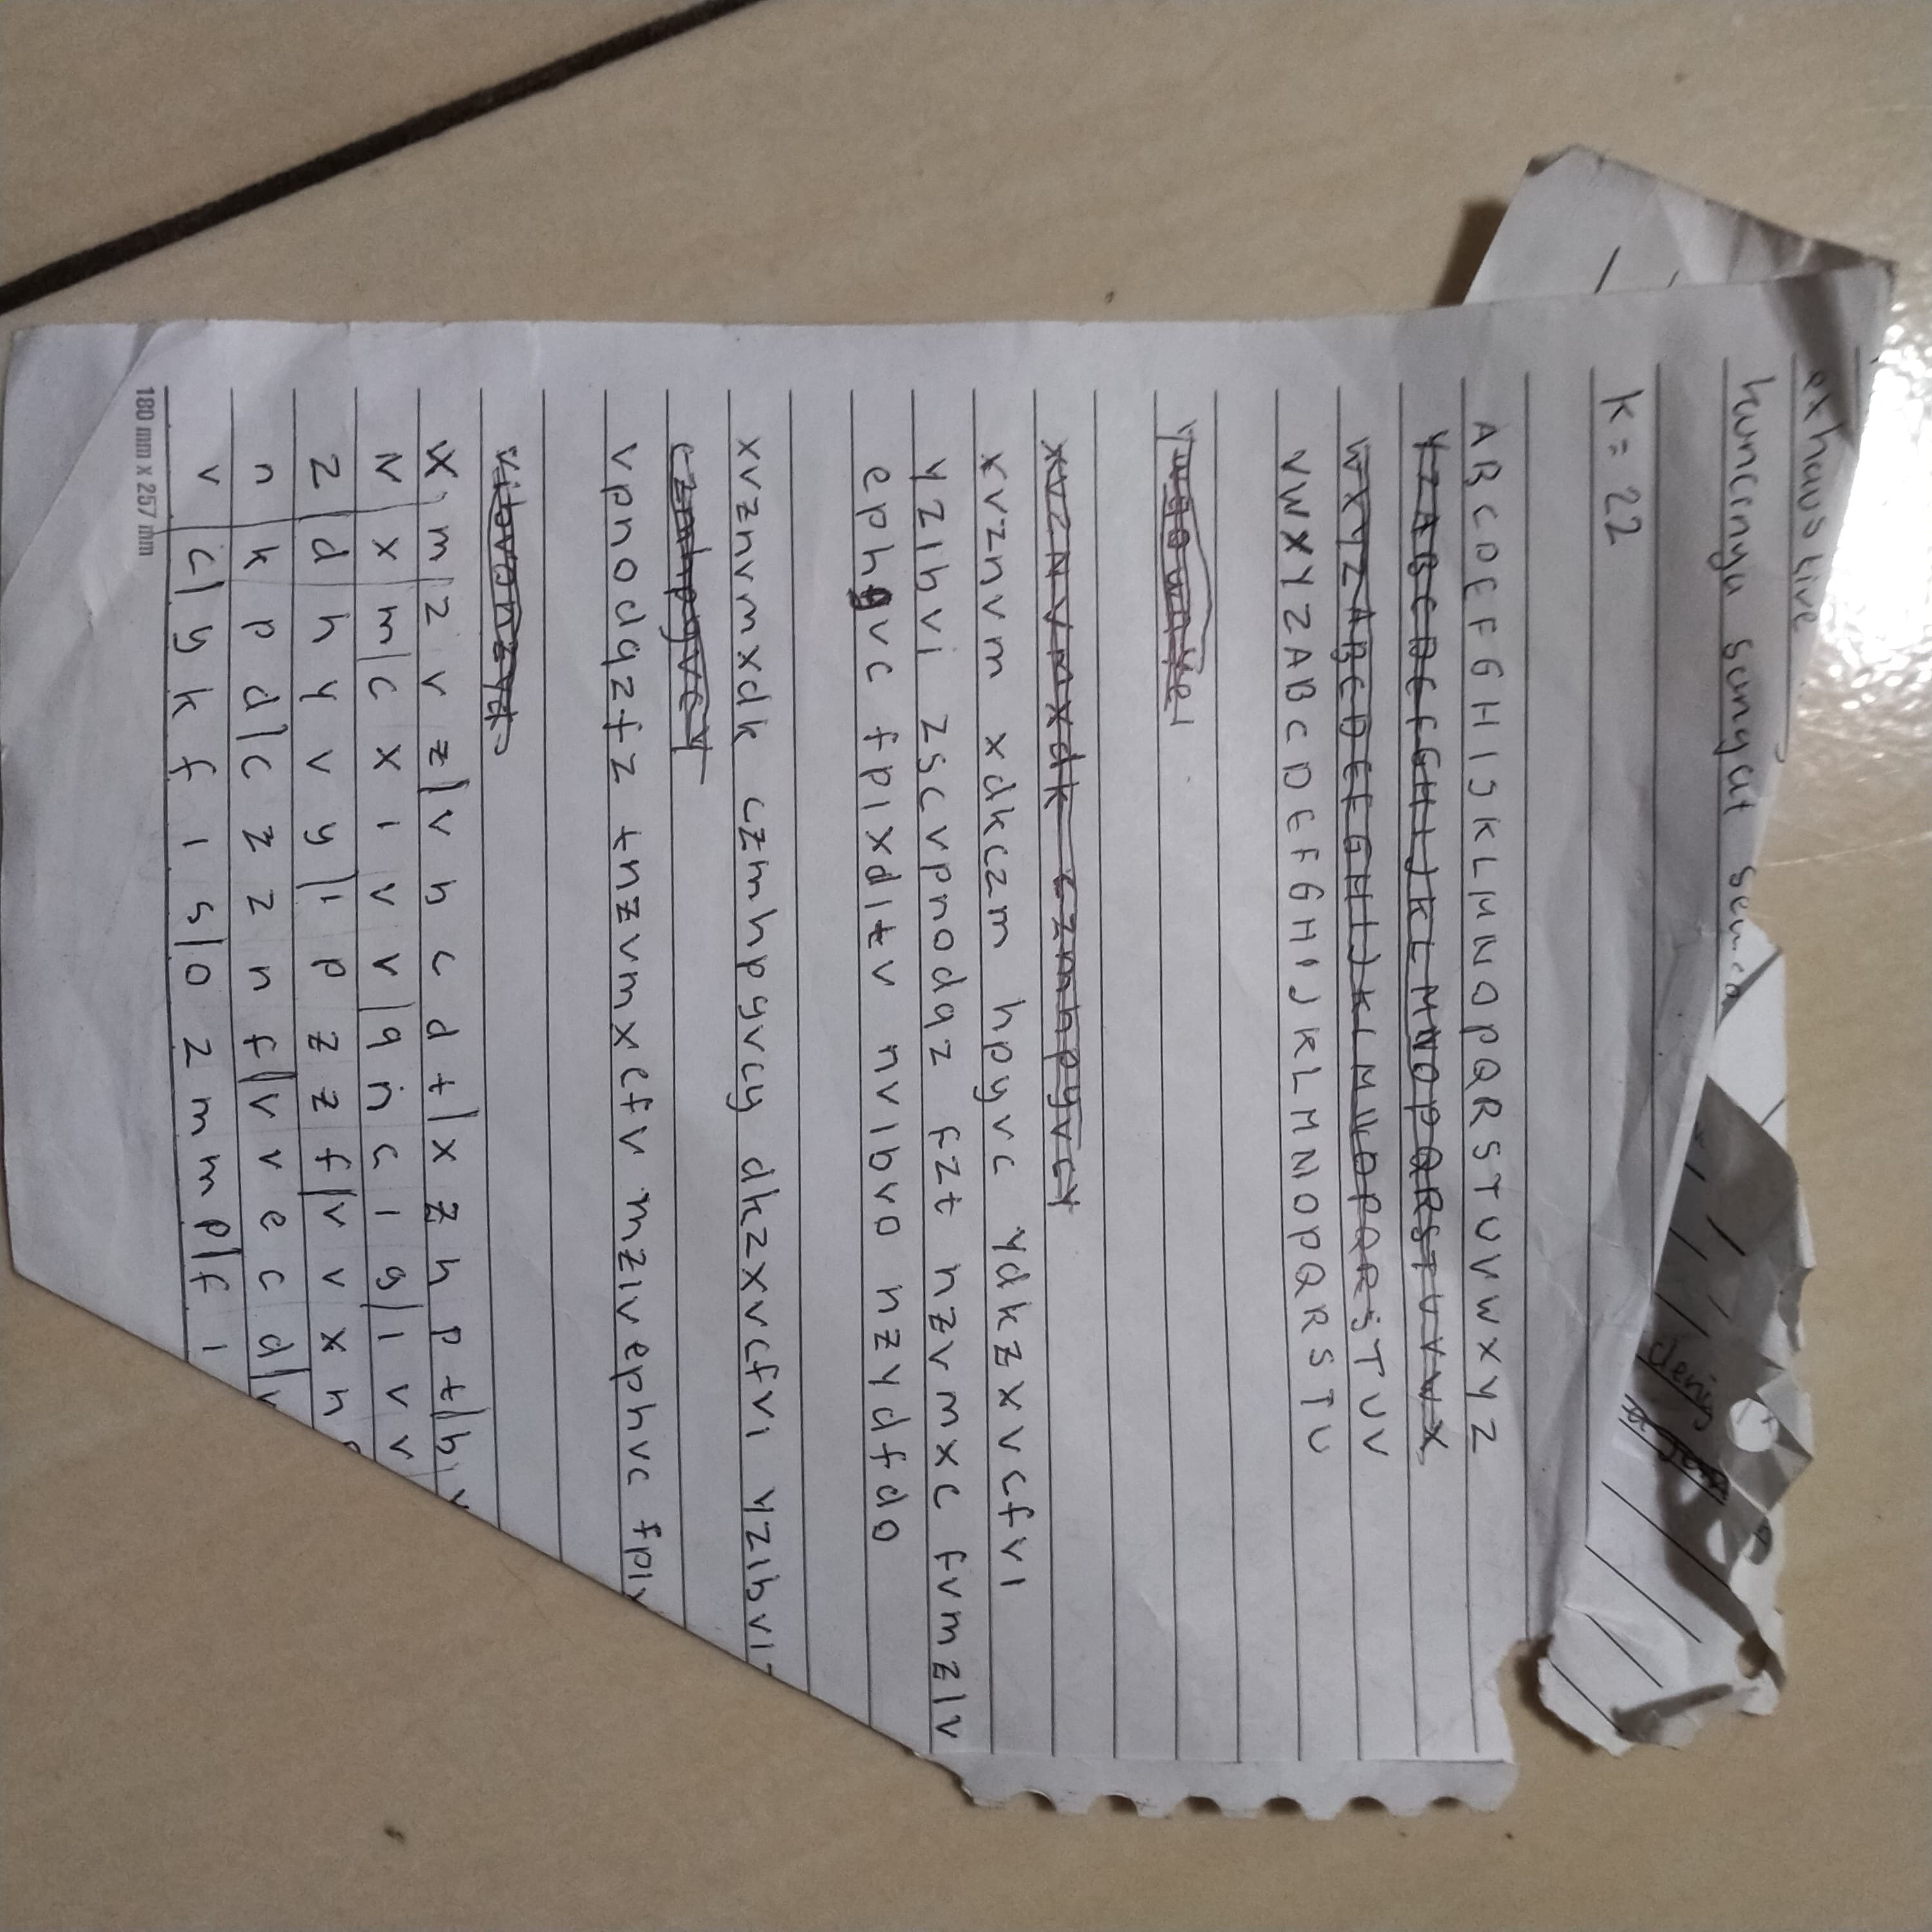 exhaustive
kuncinya sangat
K = 22
ABCDEFGHIJKLMNOPQRSTUVWXYZ
YZABCDEFGHIJKLMNOPQRSTUVWX
WXYZABCDEFGHIJKLMNOPQRSTUV
VWXYZABCDEFGHIJKLMNOPQRSTU
xvznvmxdk czmhpgvcy
xvznvm xdkczm hpgvc ydkzxvcfvi
yzibvi zscvpnodqz fzt nzvmxc fvmzlv
ephgvc fpixdizv nvlbvo nzydfdo
xvznvmxdk czmhpgvcy dkzxvcfvi
czmhpgvcy
vpnodqzfz tnzvmxcfv mzlvephvc
x m | z v z | v h c d t | x z h p t | h
v | x m | c x i v v | q h c i g | i v v
z | d h y v y | i p z z f | v v x h
n k p d | c z z n f | v v e c d |
v c | y k f i s | o z m m p | f i
180 mm x 257 mm
deny